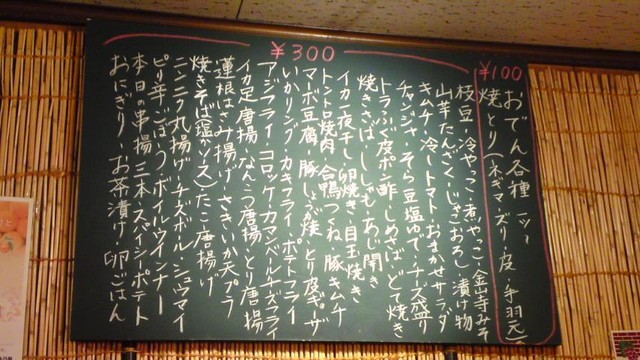 ¥100
おでん各種 一ッ〜
焼とり(ネギマ・ズリ・皮・手羽元)
¥300
枝豆・冷やっこ・煮やっこ・金山寺みそ
山芋たんざく・じゃこおろし・漬け物
キムチ・冷しトマト・おまかせサラダ
チャンジャ・そら豆塩ゆで・チーズ盛り
トラふぐ皮ポン酢・しめさば・どて焼き
焼きさば・ししゃも・あじ開き
イカ一夜干し・卵焼き・目玉焼き
トントロ焼肉・合鴨つくね・豚キムチ
マーボ豆腐・豚しょが焼・とり皮ギョーザ
いかリング・カキフライ・ポテトフライ
アジフライ・コロッケ・カマンベールチーズフライ
イカ足唐揚・なんこつ唐揚・とり唐揚
蓮根はさみ揚げ・さきいか天プラ
焼きそば(塩かソース)たこ唐揚げ
ニンニク丸揚げ・チーズボール・シュウマイ
ピリ辛ごぼう・ボイルウインナー
本日の串揚三本・スパイシーポテト
おにぎり・お茶漬け・卵ごはん